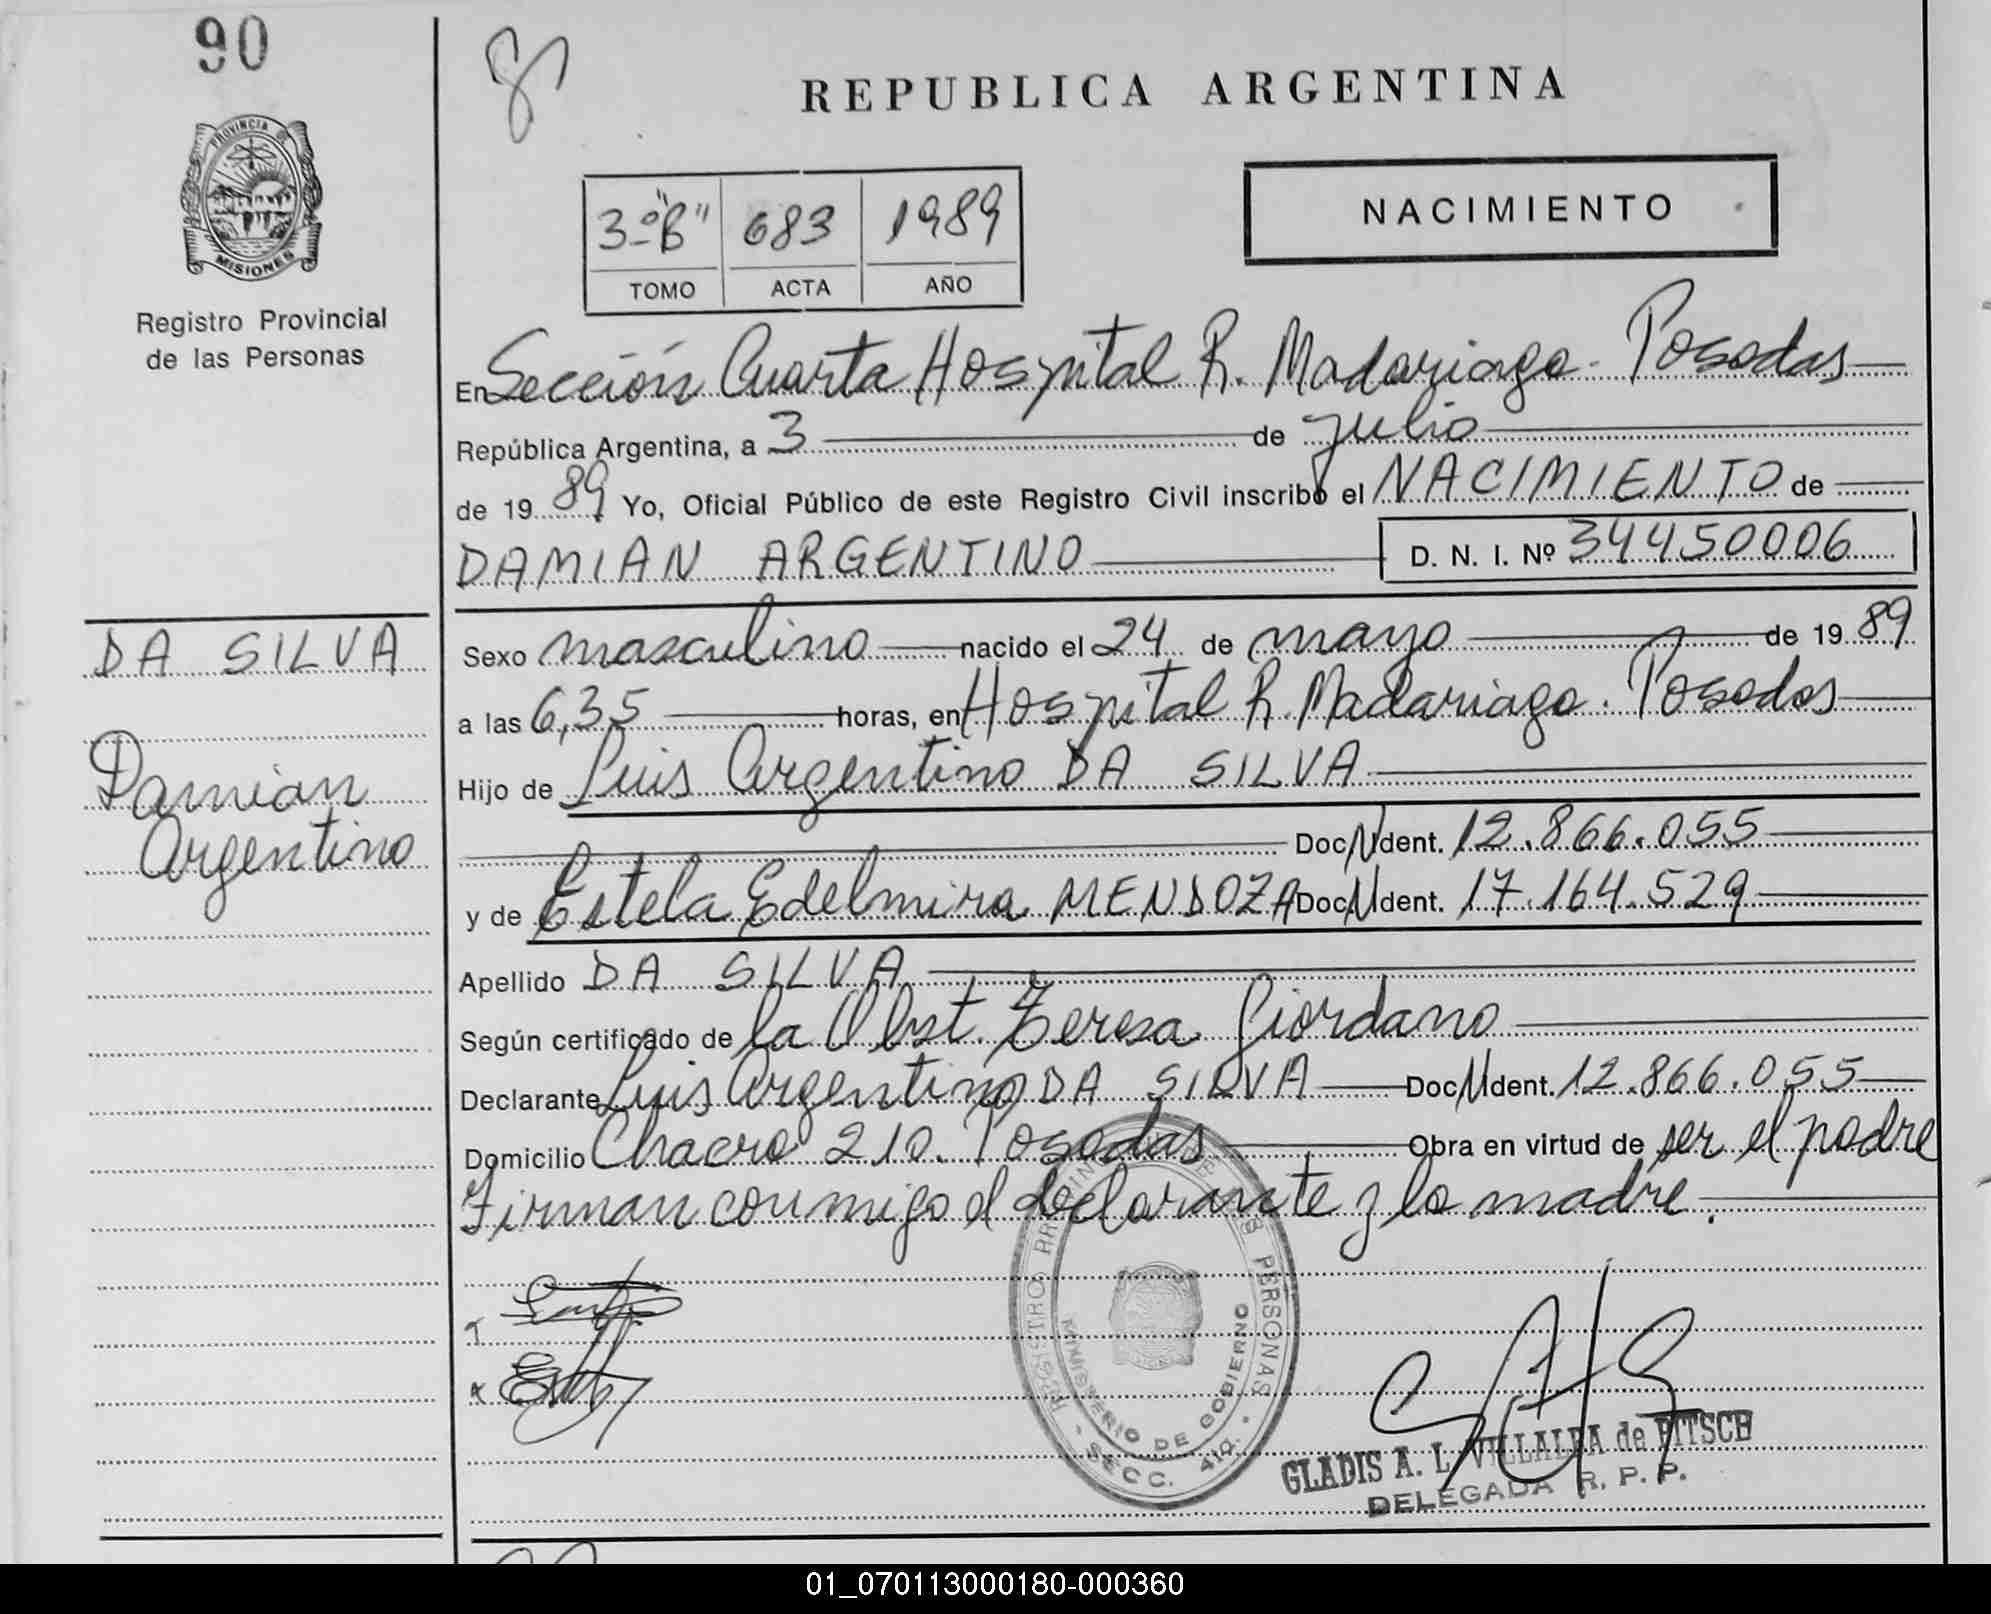 90
REPUBLICA ARGENTINA
PROVINCIA DE
MISIONES
Registro Provincial
de las Personas
3º "B" 683 1989
TOMO ACTA AÑO
NACIMIENTO
En Sección Cuarta Hospital R. Madariaga - Posadas
República Argentina, a 3 de julio
de 1989 Yo, Oficial Público de este Registro Civil inscribo el NACIMIENTO de
DAMIAN ARGENTINO D. N. I. Nº 34450006
DA SILVA
Damian
Argentino
Sexo masculino nacido el 24 de mayo de 1989
a las 6,35 horas, en Hospital R. Madariaga. Posadas
Hijo de Luis Argentino DA SILVA
Doc. N Ident. 12.866.055
y de Estela Edelmira MENDOZA Doc. N Ident. 17.164.529
Apellido DA SILVA
Según certificado de la Obst. Teresa Giordano
Declarante Luis Argentino DA SILVA Doc. N Ident. 12.866.055
Domicilio Chacra 210. Posadas Obra en virtud de ser el padre
Firman conmigo el declarante y la madre.
REGISTRO PROVINCIAL DE LAS PERSONAS
MINISTERIO DE GOBIERNO
- SECC. 4ta. -
GLADIS A. L. VILLALBA de PITSCH
DELEGADA R. P. P.
01_070113000180-000360